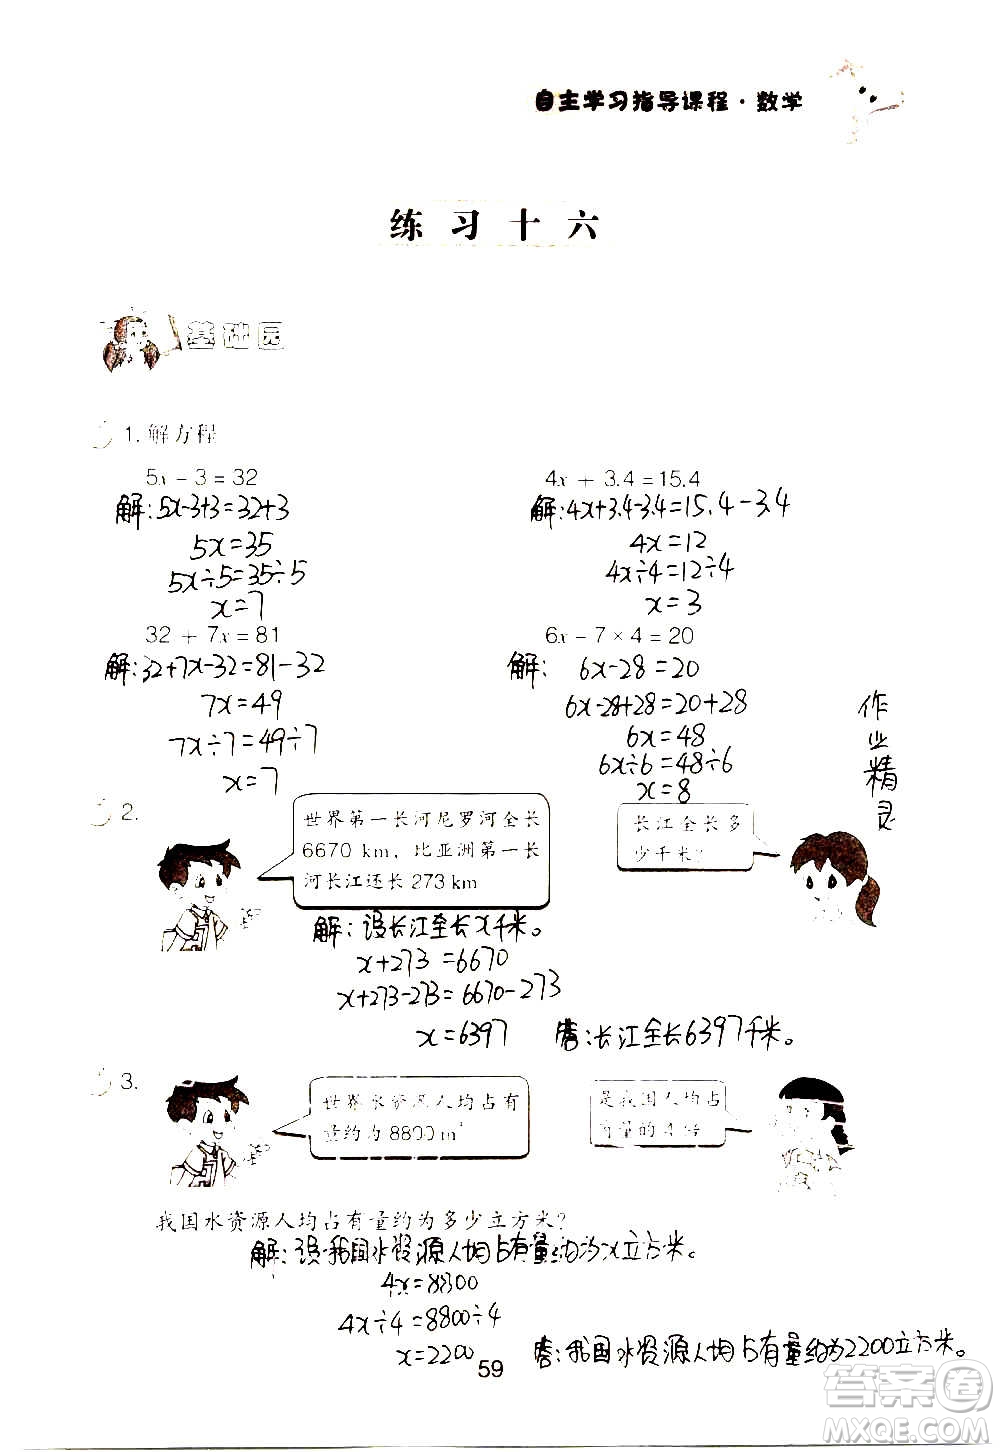 自主学习指导课程·数学
练习十六
基础园
1. 解方程
5x − 3 = 32
4x + 3.4 = 15.4
解:5x-3+3=32+3
解:4x+3.4-3.4=15.4-3.4
5x=35
4x=12
5x÷5=35÷5
4x÷4=12÷4
x=7
x=3
32 + 7x = 81
6x − 7 × 4 = 20
解:32+7x-32=81-32
解: 6x-28=20
7x=49
6x-28+28=20+28
7x÷7=49÷7
6x=48
x=7
6x÷6=48÷6
x=8
作业精灵
2.
世界第一长河尼罗河全长
6670 km, 比亚洲第一长
河长江还长 273 km
长江全长多
少千米?
解:设长江全长x千米。
x+273=6670
x+273-273=6670-273
x=6397 答:长江全长6397千米。
3.
世界水资源人均占有
量约为8800 m³
是我国人均占
有量的4倍
我国水资源人均占有量约为多少立方米?
解:设我国水资源人均占有量约为x立方米。
4x=8800
4x÷4=8800÷4
x=2200 答:我国水资源人均占有量约为2200立方米。
59
答案圈
MXQE.COM